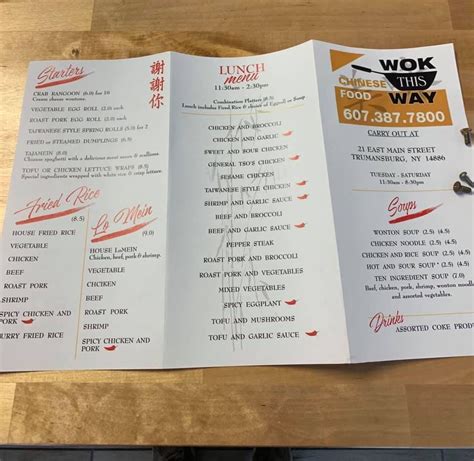 Starters
CRAB RANGOON (6.0) for 10
Cream cheese wontons.
VEGETABLE EGG ROLL (2.0) each
ROAST PORK EGG ROLL (2.0) each
TAIWANESE STYLE SPRING ROLLS (5.0) for 2
FRIED or STEAMED DUMPLINGS (6.5)
TAINMEIN (6.0)
Chinese spaghetti with a delicious meat sauce & scallions
TOFU OR CHICKEN LETTUCE WRAPS (8.5)
Special ingredients wrapped with white rice & crisp lettuce
謝
謝
你
Fried Rice
(8.5)
HOUSE FRIED RICE
VEGETABLE
CHICKEN
BEEF
ROAST PORK
SHRIMP
SPICY CHICKEN AND
PORK
CURRY FRIED RICE
Lo Mein
(9.0)
HOUSE LoMEIN
Chicken, beef, pork & shrimp.
VEGETABLE
CHICKEN
BEEF
ROAST PORK
SHRIMP
SPICY CHICKEN AND
PORK
LUNCH
menu
11:30am - 2:30pm
Combination Platters (8.5)
Lunch includes Fried Rice & choice of Eggroll or Soup
CHICKEN AND BROCCOLI
CHICKEN AND GARLIC
SWEET AND SOUR CHICKEN
GENERAL TSO'S CHICKEN
SESAME CHICKEN
TAIWANESE STYLE CHICKEN
SHRIMP AND GARLIC SAUCE
BEEF AND BROCCOLI
BEEF AND GARLIC SAUCE
PEPPER STEAK
ROAST PORK AND BROCCOLI
ROAST PORT AND VEGETABLES
MIXED VEGETABLES
SPICY EGGPLANT
TOFU AND MUSHROOMS
TOFU AND GARLIC SAUCE
WOK
THIS
WAY
CHINESE
FOOD
607.387.7800
CARRY OUT AT
21 EAST MAIN STREET
TRUMANSBURG, NY 14886
TUESDAY - SATURDAY
11:30am - 8:30pm
Soups
WONTON SOUP (2.5) (4.5)
CHICKEN NOODLE (2.5) (4.5)
CHICKEN and RICE SOUP (2.5) (4.5)
HOT AND SOUR SOUP (2.5) (4.5)
TEN INGREDIENT SOUP (7.0)
Beef, chicken, pork, shrimp, wonton noodles
and assorted vegetables.
Drinks
ASSORTED COKE